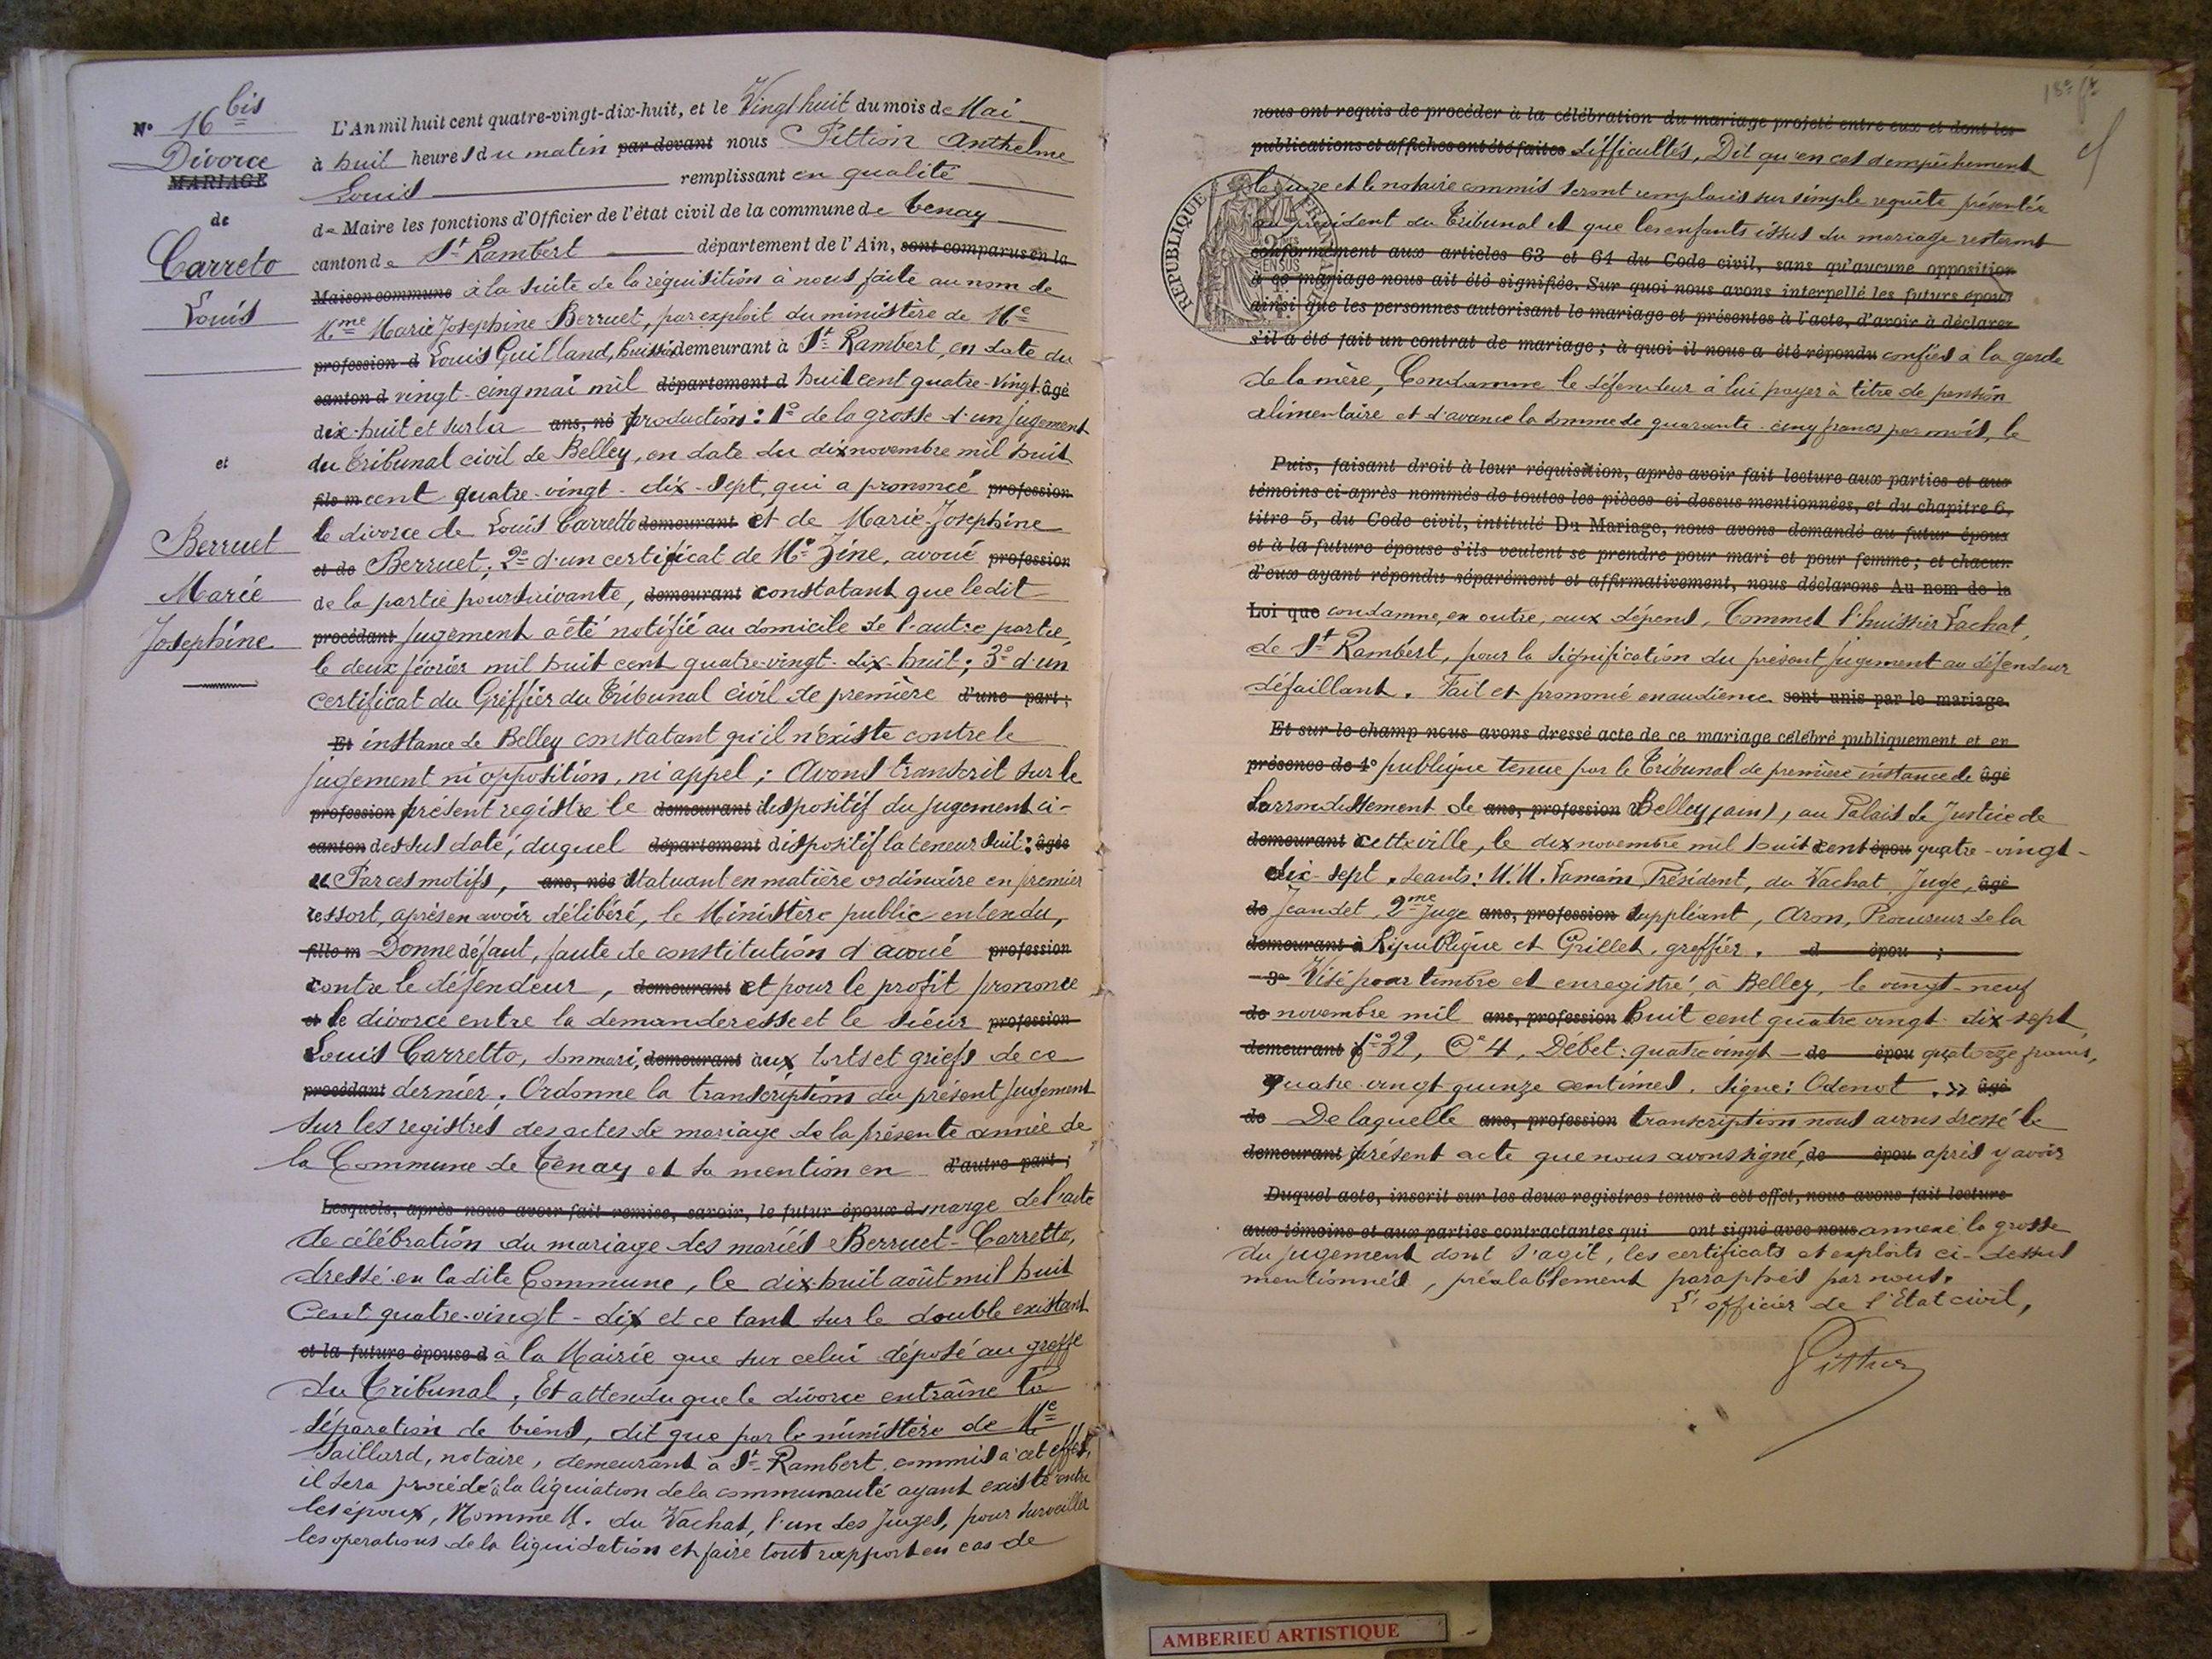 N° 16 bis
Divorce
MARIAGE
de
Carreto
Louis
et
Berruet
Marie
Josephine
L'An mil huit cent quatre-vingt-dix-huit, et le Vingt huit du mois de Mai
à huit heures du matin par devant nous Pittion Anthelme
Louis remplissant en qualité
de Maire les fonctions d'Officier de l'état civil de la commune de Tenay
canton de St Rambert département de l'Ain, sont comparus en la
Maison commune à la suite de la réquisition à nous faite au nom de
Mme Marie Josephine Berruet, par exploit du ministère de Me
profession d Louis Guilland, huissier demeurant à St Rambert, en date du
canton d vingt-cinq mai mil département d huit cent quatre-vingt âgé
dix-huit et sur la ans, né production: 1° de la grosse d'un jugement
du Tribunal civil de Belley, en date du dix novembre mil huit
fils m cent quatre-vingt-dix-sept, qui a prononcé profession
le divorce de Louis Carretto demeurant et de Marie-Josephine
et de Berruet; 2° d'un certificat de Me Zine, avoué profession
de la partie poursuivante, demeurant constatant que ledit
procédant jugement a été notifié au domicile de l'autre partie,
le deux février mil huit cent quatre-vingt-dix-huit; 3° d'un
certificat du Greffier du Tribunal civil de première d'une part;
Et instance de Belley constatant qu'il n'existe contre le
jugement ni opposition, ni appel; Avons transcrit sur le
profession présent registre le demeurant dispositif du jugement ci-
canton dessus daté, duquel département dispositif la teneur suit: âgée
" Par ces motifs, ans, née Statuant en matière ordinaire en premier
ressort, après en avoir délibéré, le Ministère public entendu,
fille m Donne défaut, faute de constitution d'avoué profession
contre le défendeur, demeurant et pour le profit prononce
et le divorce entre la demanderesse et le sieur profession
Louis Carretto, son mari, demeurant aux torts et griefs de ce
procédant dernier; Ordonne la transcription du présent jugement
sur les registres des actes de mariage de la présente année de
la Commune de Tenay et sa mention en d'autre part;
Lesquels, après nous avoir fait remise, savoir, le futur époux d marge de l'acte
de célébration du mariage des mariés Berruet-Carretto,
dressé en ladite Commune, le dix-huit août mil huit
cent quatre-vingt-dix et ce tant sur le double existant
et la future épouse d à la Mairie que sur celui déposé au greffe
du Tribunal; Et attendu que le divorce entraîne la
séparation de biens, dit que par le ministère de Me
Saillard, notaire, demeurant à St Rambert commis à cet effet,
il sera procédé à la liquiation de la communauté ayant existé entre
les époux, Nomme M. du Vachat, l'un des Juges, pour surveiller
les operations de la liquidation et faire tout rapport en cas de
nous ont requis de procéder à la célébration du mariage projeté entre eux et dont les
publications et affiches ont été faites difficultés, Dit qu'en cas d'empêchement
le juge et le notaire commis seront remplacés sur simple requête présentée
au président du Tribunal et que les enfants issus du mariage resteront
conformément aux articles 63 et 64 du Code civil, sans qu'aucune opposition
à ce mariage nous ait été signifiée. Sur quoi nous avons interpellé les futurs époux
ainsi que les personnes autorisant le mariage et présentes à l'acte, d'avoir à déclarer
s'il a été fait un contrat de mariage; à quoi il nous a été répondu confiés à la garde
de la mère, Condamne le défendeur à lui payer à titre de pension
alimentaire et d'avance la somme de quarante-cinq francs par mois, le
Puis, faisant droit à leur réquisition, après avoir fait lecture aux parties et aux
témoins ci-après nommés de toutes les pièces ci-dessus mentionnées, et du chapitre 6,
titre 5, du Code civil, intitulé Du Mariage, nous avons demandé au futur époux
et à la future épouse s'ils veulent se prendre pour mari et pour femme; et chacun
d'eux ayant répondu séparément et affirmativement, nous déclarons Au nom de la
Loi que condamne, en outre, aux dépens, Commet l'huissier Vachat,
de St Rambert, pour la signification du présent jugement au défendeur
défaillant. Fait et prononcé en audience sont unis par le mariage.
Et sur-le-champ nous avons dressé acte de ce mariage célébré publiquement et en
présence de 1° publique tenue par le Tribunal de première instance de âgé
l'arrondissement de ans, profession Belley (ain), au Palais de Justice de
demeurant cette ville, le dix novembre mil huit cent épou quatre-vingt-
dix-sept, séants: M.M. Lamain Président, du Vachat Juge, âgé
de Jeandet, 2me Juge ans, profession suppléant, Aron, Procureur de la
demeurant à République et Grillet, greffier. d épou ;
3° Visé pour timbre et enregistré, à Belley, le vingt-neuf
de novembre mil ans, profession huit cent quatre vingt-dix-sept,
demeurant f° 32, Ce 4, Debet: quatre vingt- de épou quatorze francs,
quatre-vingt quinze centimes. Signé: Odenot. » âgé
de De laquelle ans, profession transcription nous avons dressé le
demeurant présent acte que nous avons signé, de épou après y avoir
Duquel acte, inscrit sur les deux registres tenus à cet effet, nous avons fait lecture
aux témoins et aux parties contractantes qui ont signé avec nous annexé la grosse
du jugement dont s'agit, les certificats et exploits ci-dessus
mentionnés, préalablement paraphés par nous.
L'officier de l'Etat civil,
Pittion
REPUBLIQUE FRANÇAISE
AMBERIEU ARTISTIQUE